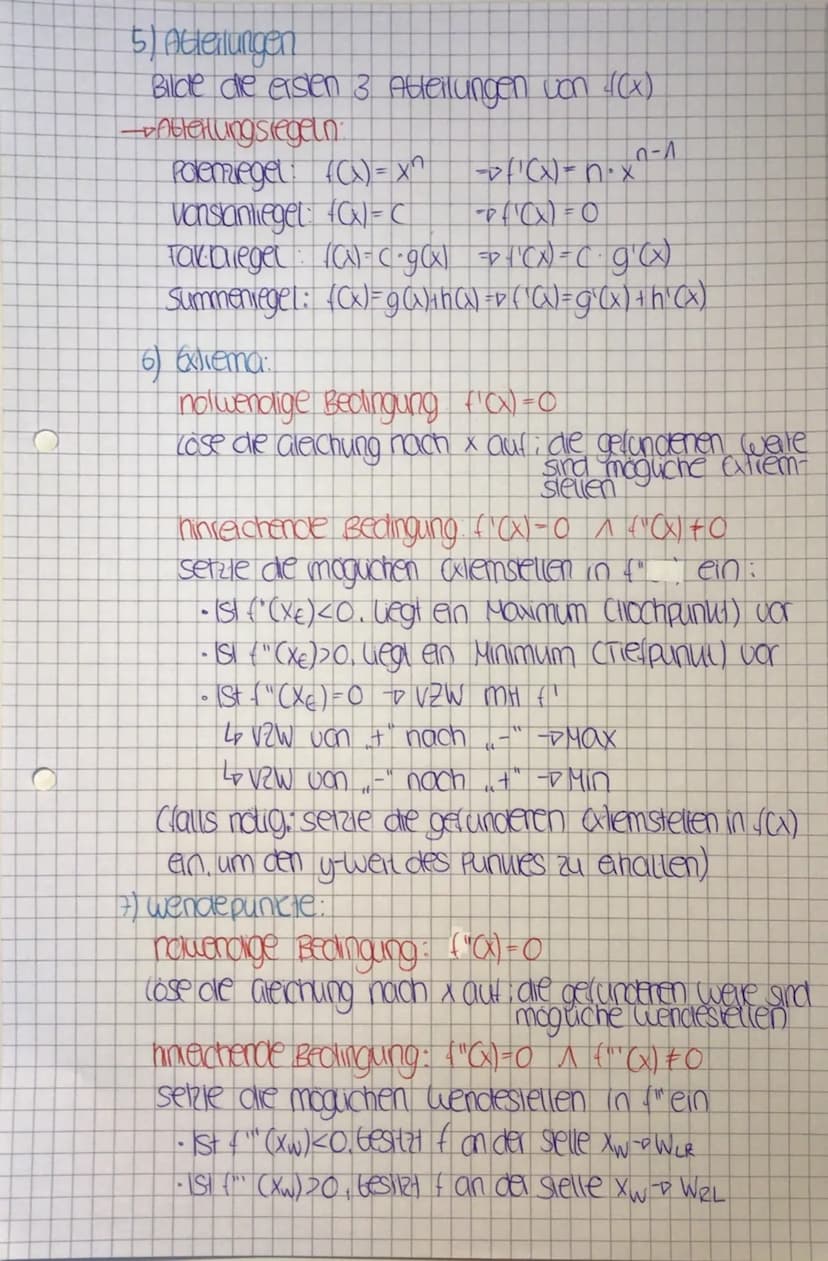 5) Ableitungen
Bilde die ersten 3 Ableitungen von f(x)
→Ableitungsregeln:
Potenzregel: f(x)=xⁿ ⇒ f'(x)=n·xⁿ⁻¹
Konstantregel: f(x)=c ⇒ f'(x)=0
Faktorregel: f(x)=c·g(x) ⇒ f'(x)=c·g'(x)
Summenregel: f(x)=g(x)+h(x) ⇒ f'(x)=g'(x)+h'(x)
6) Extrema:
notwendige Bedingung f'(x)=0
Löse die Gleichung nach x auf; die gefundenen Werte
sind mögliche Extrem-
stellen
hinreichende Bedingung: f'(x)=0 ∧ f''(x)≠0
setzte die möglichen Extremstellen in f'' ein:
·Ist f''(xE)<0, liegt ein Maximum (Hochpunkt) vor
·Ist f''(xE)>0, liegt ein Minimum (Tiefpunkt) vor
·Ist f''(xE)=0 ⇒ VZW mit f'
↳ VZW von „+" nach „-" ⇒ Max
↳ VZW von „-" nach „+" ⇒ Min
(falls nötig: setzte die gefundenen Extremstellen in f(x)
ein, um den y-Wert des Punktes zu erhalten)
7) Wendepunkte:
notwendige Bedingung: f''(x)=0
Löse die Gleichung nach x auf; die gefundenen Werte sind
mögliche Wendestellen
hinreichende Bedingung: f''(x)=0 ∧ f'''(x)≠0
setzte die möglichen Wendestellen in f''' ein
·Ist f'''(xW)<0, besitzt f an der Stelle xW ⇒ WLR
·Ist f'''(xW)>0, besitzt f an der Stelle xW ⇒ WRL